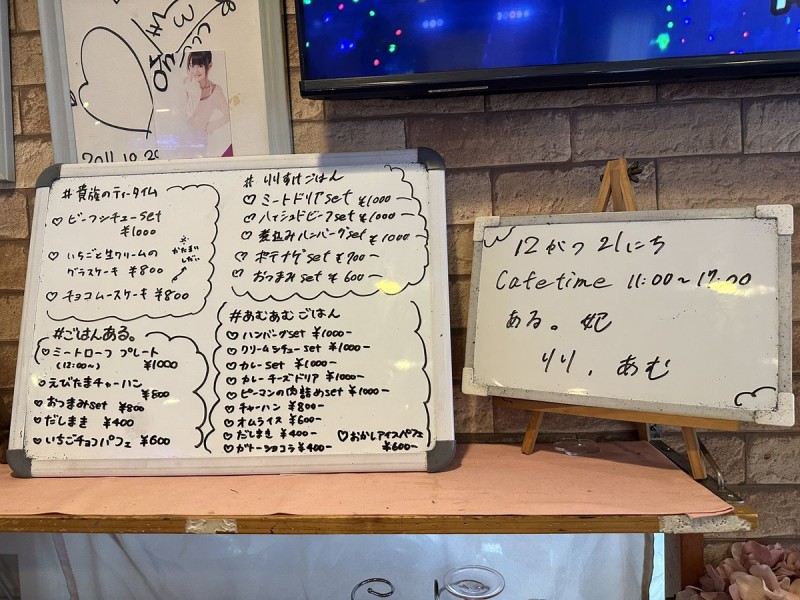 2011.10.29
#貴族のティータイム
♡ ビーフシチューset
¥1000
♡ いちごと生クリームの
グラスケーキ ¥800
※かたまり
しだい
♡ チョコムースケーキ ¥800
#ごはんある。
♡ミートローフ プレート
(12:00~) ¥1000
♡えびたまチャーハン
¥800
♡おつまみset ¥800
♡だしまき ¥400
♡いちごチョコパフェ ¥600
# りりすけごはん
♡ ミートドリアset ¥1000-
♡ ハイシュドビーフset ¥1000-
♡ 煮込みハンバーグset ¥1000-
♡ ポテナゲset ¥700-
♡ おつまみset ¥600-
#あむあむごはん
♡ ハンバーグset ¥1000-
♡ クリームシチューset ¥1000-
♡ カレーset ¥1000-
♡ カレーチーズドリア ¥1000-
♡ ピーマンの肉詰めset ¥1000-
♡ チャーハン ¥800-
♡ オムライス ¥600-
♡ だしまき ¥400-
♡ ガトーショコラ ¥400-
♡おかしアイスパフェ
¥600-
12がつ 21にち
Cafetime 11:00~17:00
ある。妃
りり、あむ